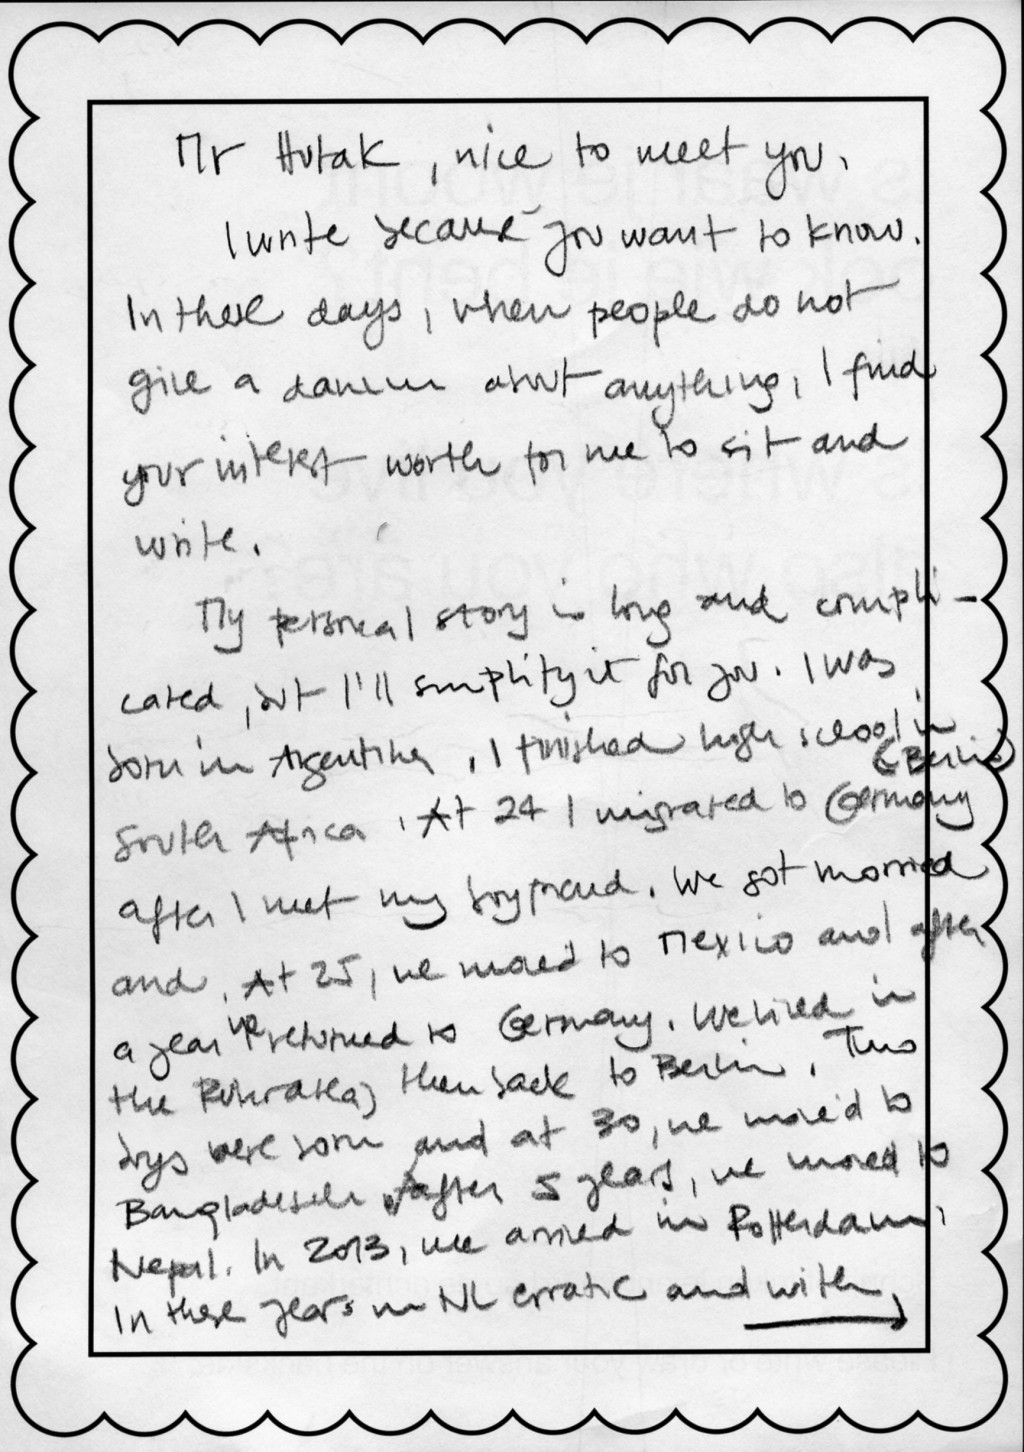 Mr Hutak, nice to meet you.
I write because you want to know.
In these days, when people do not
give a damm about anything, I find
your interest worth for me to sit and
write.
My personal story is long and compli-
cated, but I'll simplify it for you. I was
born in Argentina, I finished high school in
(Berlin)
South Africa. At 24 I migrated to Germany
after I meet my boyfriend. We got married
and, At 25, we moved to Mexico and after
a year we returned to Germany. We lived in
the then back to Berlin. Two
boys were born and at 30, we moved to
Bangladesh, after 5 years, we moved to
Nepal. In 2013, we arrived in Rotterdam,
In these years in NL erratic and with